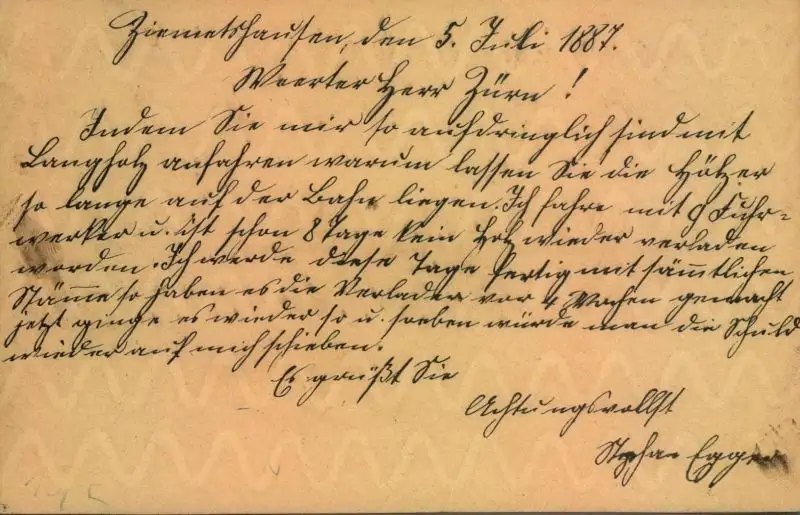 Ziemetshausen, den 5. Juli 1887.
Weerter Herr Zürn!
Indem Sie mir so aufdringlich sind mit
Langholz anfahren warum lassen Sie die Hölzer
so lange auf der Bahn liegen. Ich fahre mit 9 Fuhr=
werker u. ist schon 8 Tage kein Holz wieder verladen
worden. Ich werde diese Tage fertig mit sämmtlichen
Stämme so haben es die Verlader vor 4 Wochen gemacht
jetzt ginge es wieder so u. soeben würde man die Schuld
wieder auf mich schieben.
Es grüßt Sie
Achtungsvollst
Stephan Egger